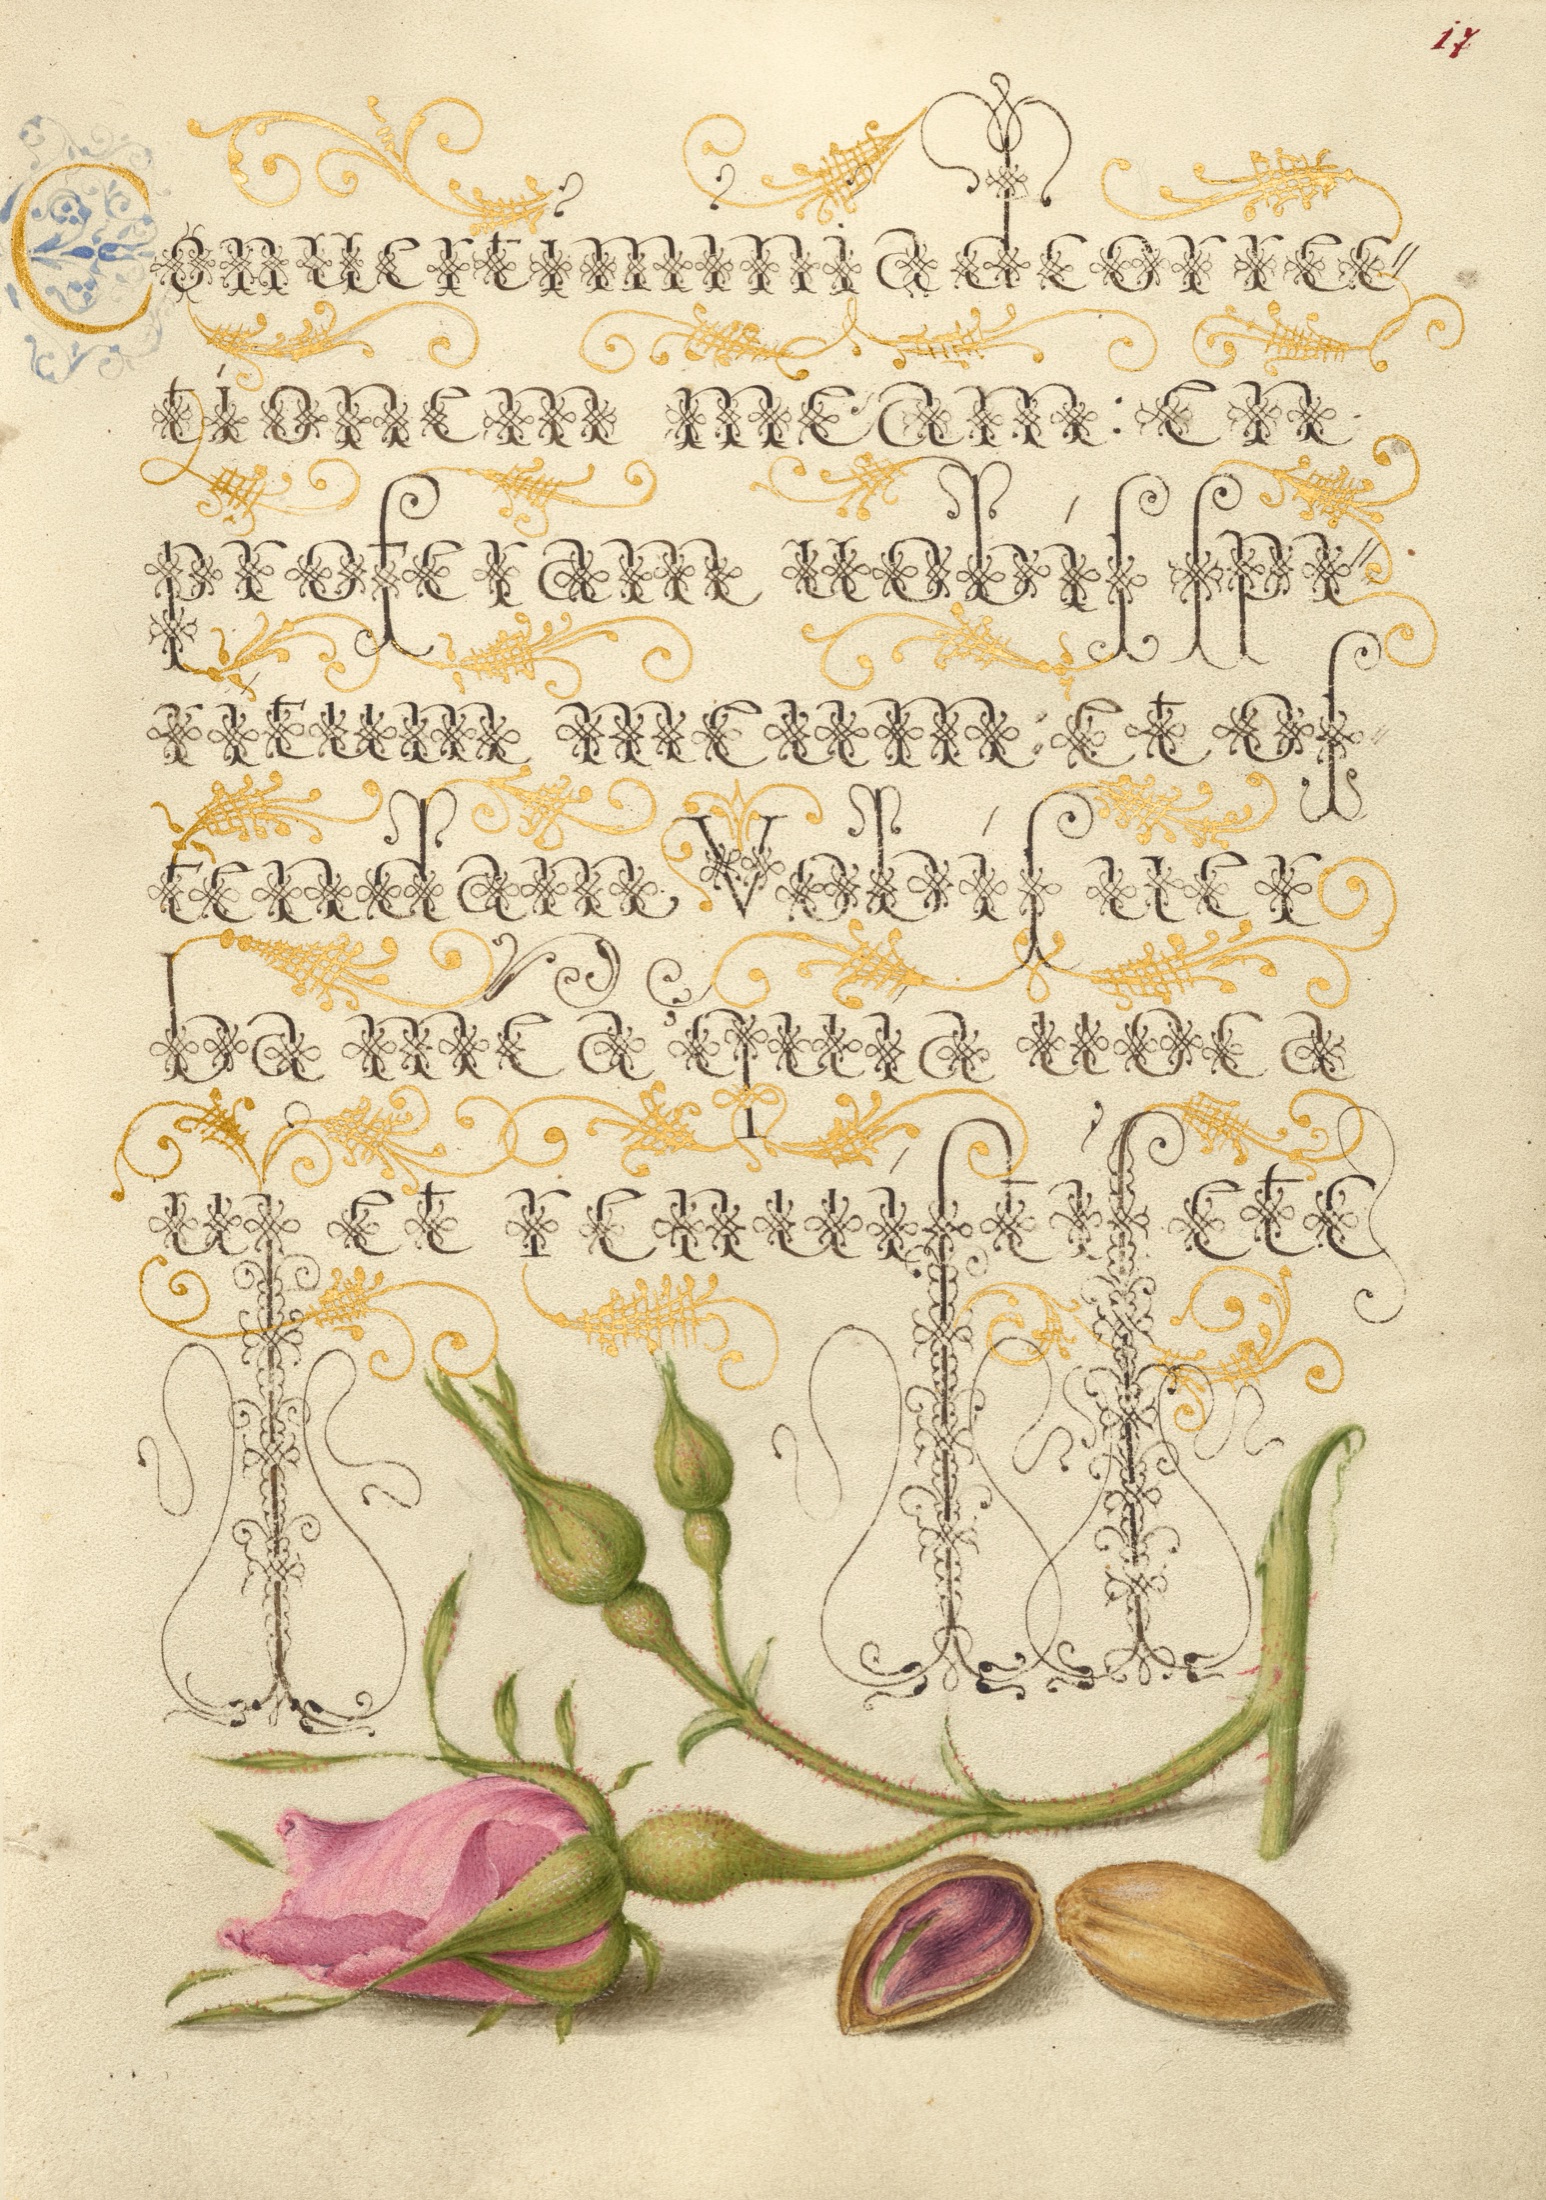 17
Conuertimini ad correc〃
tionem meam: en
proferam uobíſ ſpi〃
ritum meum: et oſ〃
tendam Vobíſ uer
ba mea: quia uoca
ui et renuíſtiſ etc